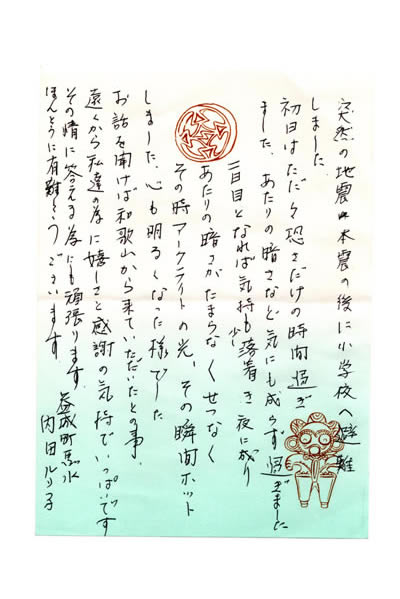 突然の地震 本震の後に小学校へ避難
しました、
初日はただ々恐さだけの時間過ぎ
ました、あたりの暗さなど気にも成らず過ぎました
二日目となれば気持も少し落着き夜に成り
あたりの暗さがたまらなくせつなく
その時アークライトの光、その瞬間ホット
しました、心も明るくなった様でした
お話を聞けば和歌山から来ていただいたとの事、
遠くから私達の為に嬉しさと感謝の気持でいっぱいです
その情に答える為にも頑張ります、
ほんとうに有難とうございます
益城町馬水
内田ルリ子